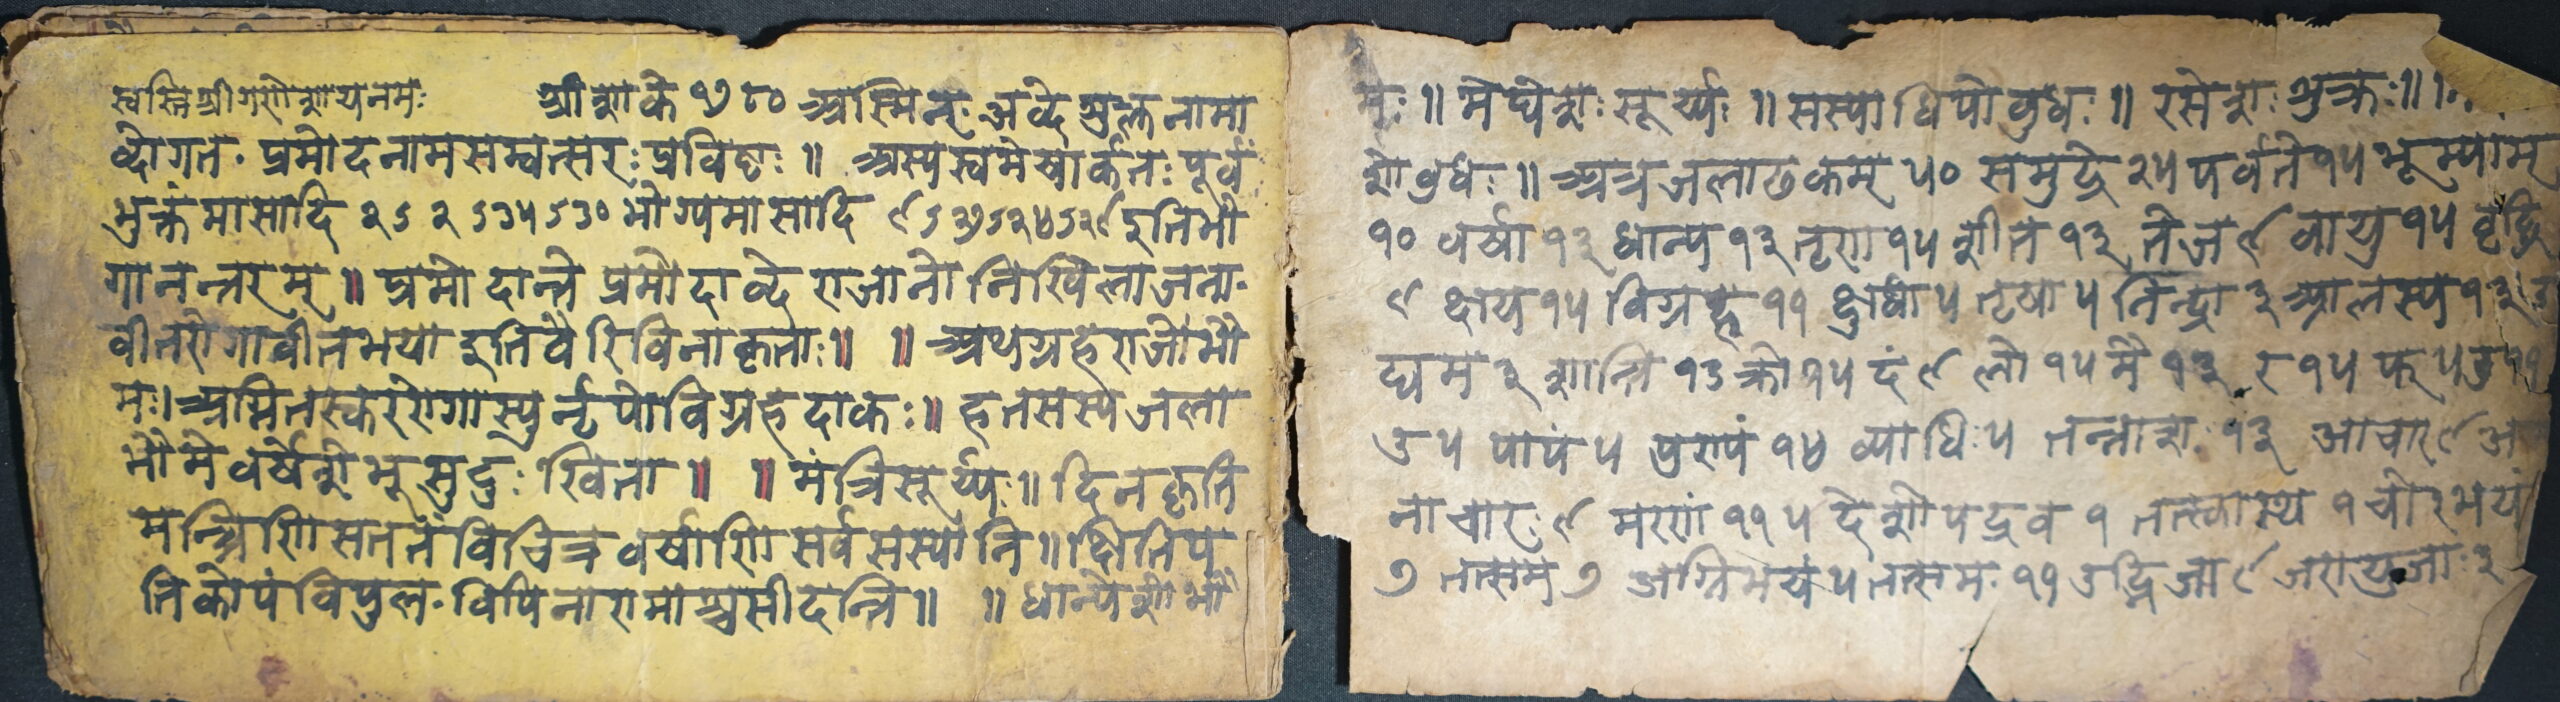 स्वस्तिश्रीगणेशायनमः श्रीशाके १७८० अस्मिन् अव्दे शुल्क्तनामा
व्दोगत. प्रमोदनामसम्वत्सरः प्रविष्टः ॥ अस्यस्यमेषार्कतः पूर्वं
भुक्तं मासादि २ऽ २ ऽ३५ऽ३० भोग्यमासादि ९ऽ२७ऽ२४ऽ२९ इतिभो
गानन्तरम् ॥ प्रमोदान्ते प्रमोदाव्दे राजानो निखिलाजना.
वीतरोगावीतभया इतिवैरिविनाकृताः ॥ ॥ अथग्रहराजोभौ
मः। अग्नितस्कररोगास्पुर्नृपोविग्रहदाकः ॥ हतसस्यजला
भौमे वर्षेशे भू सुदुः खिता ॥ ॥ मंत्रिसूर्य्यः ॥ दिनकृति
मन्त्रिणि सततं विचित्र वर्षाणि सर्वसस्यानि ॥ क्षितिप
तिकोपं विपुल. विपिनारामाश्चसीदन्ति ॥ ॥ धान्येशोभौ
मः ॥ मेघेशः सूर्य्यः ॥ सस्याधिपोवुधः ॥ रसेशः भुक्रः ॥
शोवुधः ॥ अत्रजलाढकम् ५० समुद्रे २५ पर्वते १५ भूम्याम्
१० वर्षा १३ धान्य १३ तृण १५ शीत १३ तेज ९ वायु १५ वृद्धि
९ क्षय १५ विग्रह ११ क्षुधा ५ तृषा ५ निन्द्रा ३ आलस्य १३
द्यम ३ शान्ति १३ क्रो १५ दं ९ लो १५ मै १३ र १५ फ ५ उ ११
उ ५ पापं ५ पुण्यं १४ व्याधिः ५ तन्नाशः १३ आचार ९ अ
नाचारः ९ मरणं ११ ५ देशोपद्रव १ तत्स्वास्थ १ चोरभयं
७ तत्सम ७ अग्निभयं ५ तत्समः ११ उद्भिजा ९ जरायुजाः ३